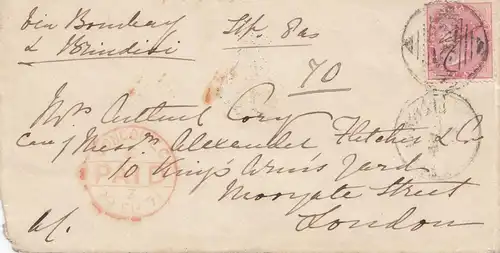 Via Bombay Stp. 8as
& Brindisi
70
Mrs Arthur Cory
Care of Messrs Alexander Fletcher & Co
PAID
10 King's Arms Yard
Moorgate Street
London